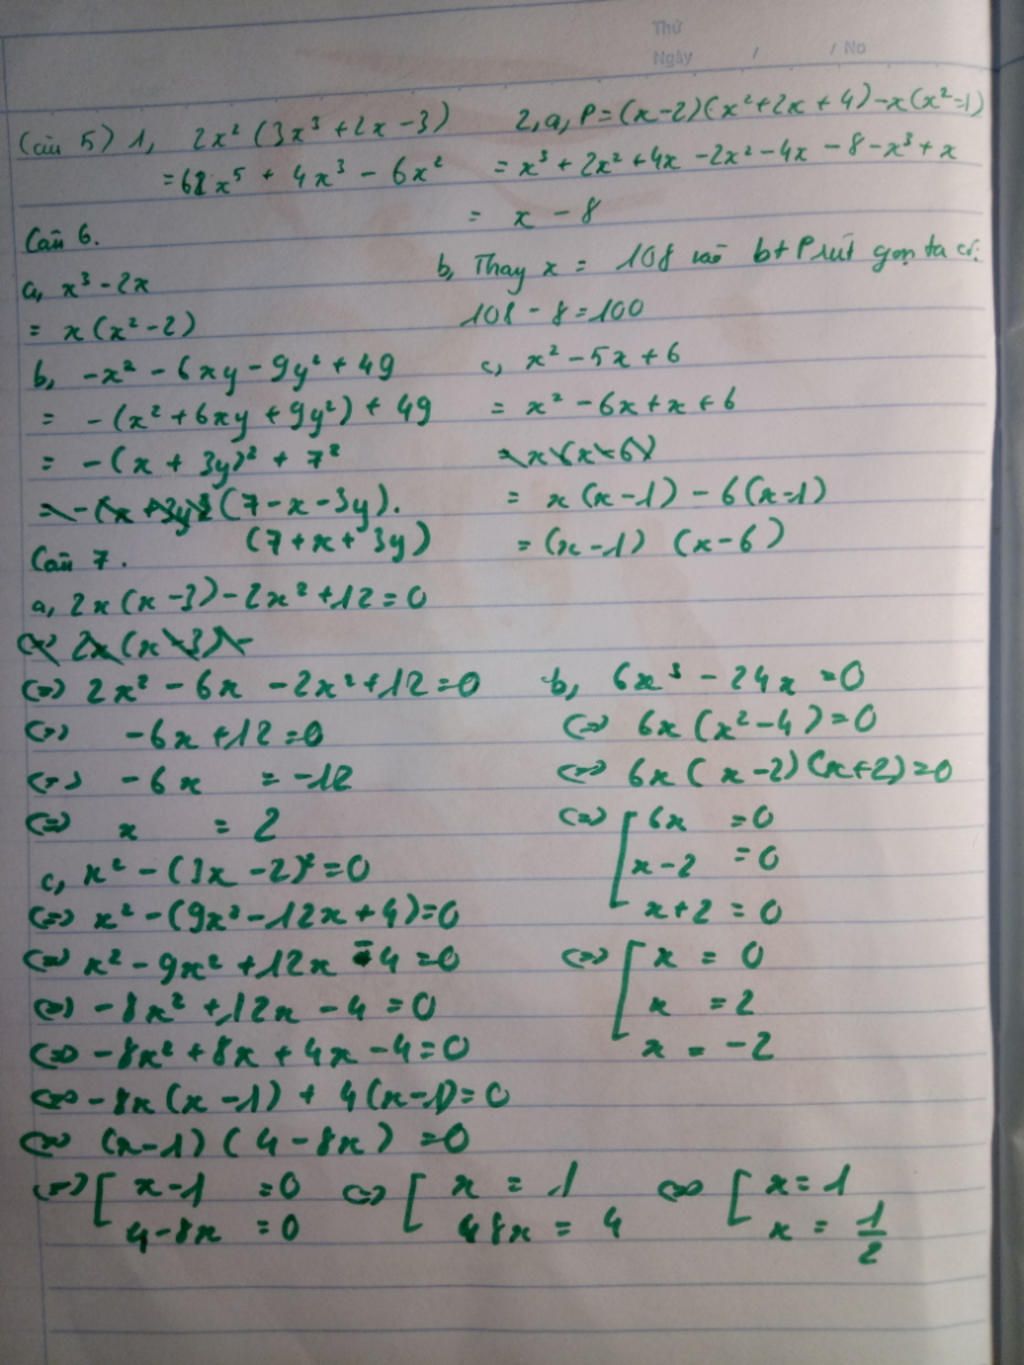 Thứ
Ngày / / No
Câu 5) 1, 2x² (3x³ + 2x - 3)
= 6x⁵ + 4x³ - 6x²
2, a, P = (x-2)(x²+2x+4)-x(x²-1)
= x³ + 2x² + 4x - 2x² - 4x - 8 - x³ + x
= x - 8
b, Thay x = 108 vào bt P rút gọn ta có:
108 - 8 = 100
Câu 6.
a, x³ - 2x
= x(x² - 2)
b, -x² - 6xy - 9y² + 49
= -(x² + 6xy + 9y²) + 49
= -(x + 3y)² + 7²
= (7-x-3y).
(7+x+3y)
c, x² - 5x + 6
= x² - 6x + x + 6
= x(x-6)
= x(x-1) - 6(x-1)
= (x-1) (x-6)
Câu 7.
a, 2x(x-3)-2x²+12=0
<=> 2x(x-3)-
<=> 2x² - 6x - 2x² + 12 = 0
<=> -6x + 12 = 0
<=> -6x = -12
<=> x = 2
b, 6x³ - 24x = 0
<=> 6x(x²-4)=0
<=> 6x(x-2)(x+2)=0
<=> [ 6x = 0
x-2 = 0
x+2 = 0
<=> [ x = 0
x = 2
x = -2
c, x² - (3x-2)² = 0
<=> x² - (9x² - 12x + 4) = 0
<=> x² - 9x² + 12x - 4 = 0
<=> -8x² + 12x - 4 = 0
<=> -8x² + 8x + 4x - 4 = 0
<=> -8x(x-1) + 4(x-1) = 0
<=> (x-1)(4-8x) = 0
<=> [ x-1 = 0 <=> [ x = 1 <=> [ x = 1
4-8x = 0 8x = 4 x = 1/2